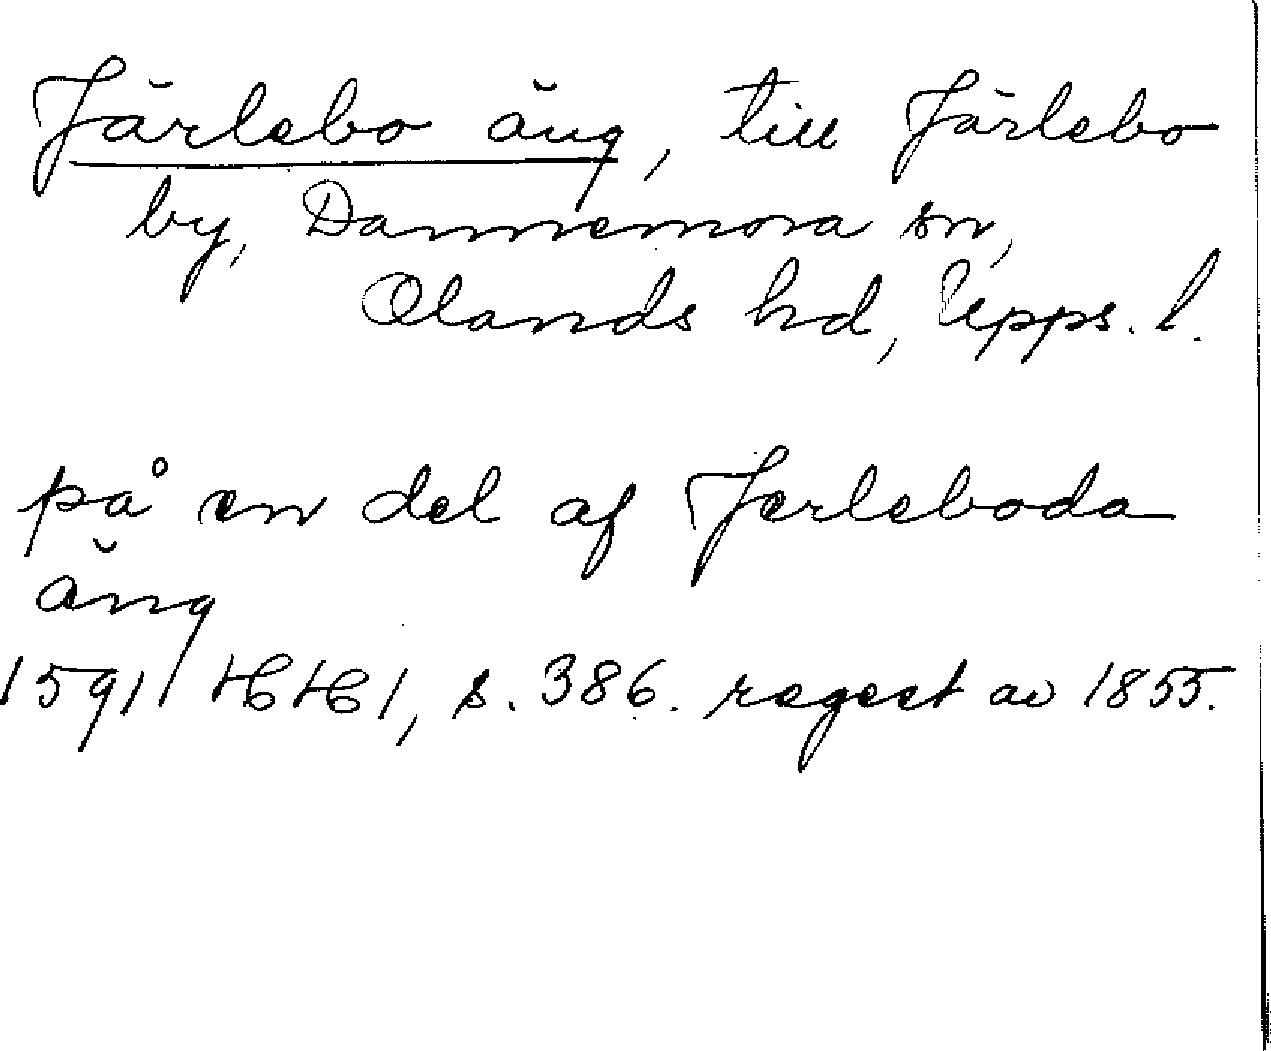 Järlebo äng, till Järlebo
by, Dannemora sn,
Olands hd, Upps. l.
på en del af Jerleboda
äng
1591 HH 1, s. 386. regest av 1855.